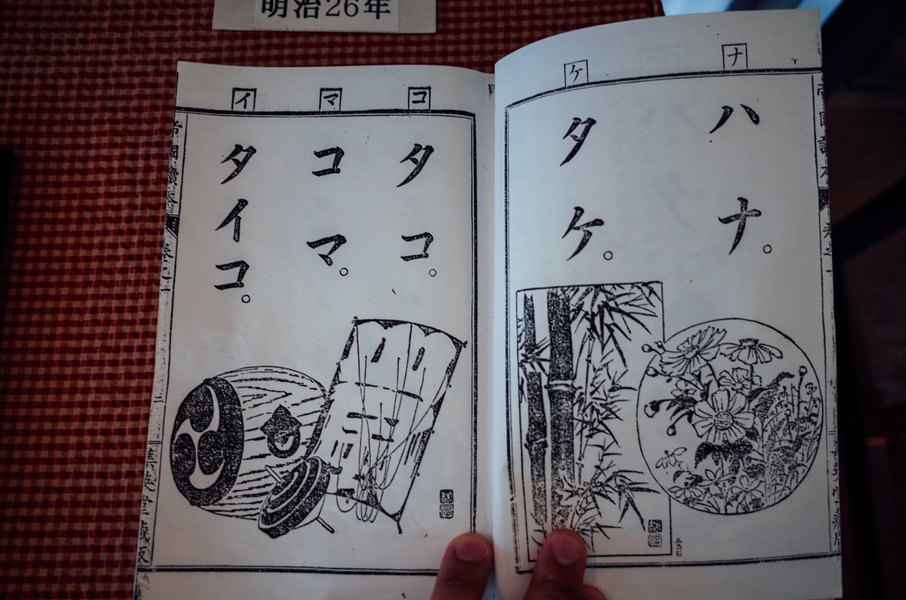 明治26年
ナ
ハナ。
ケ
タケ。
コ
タコ。
マ
コマ。
イ
タイコ。